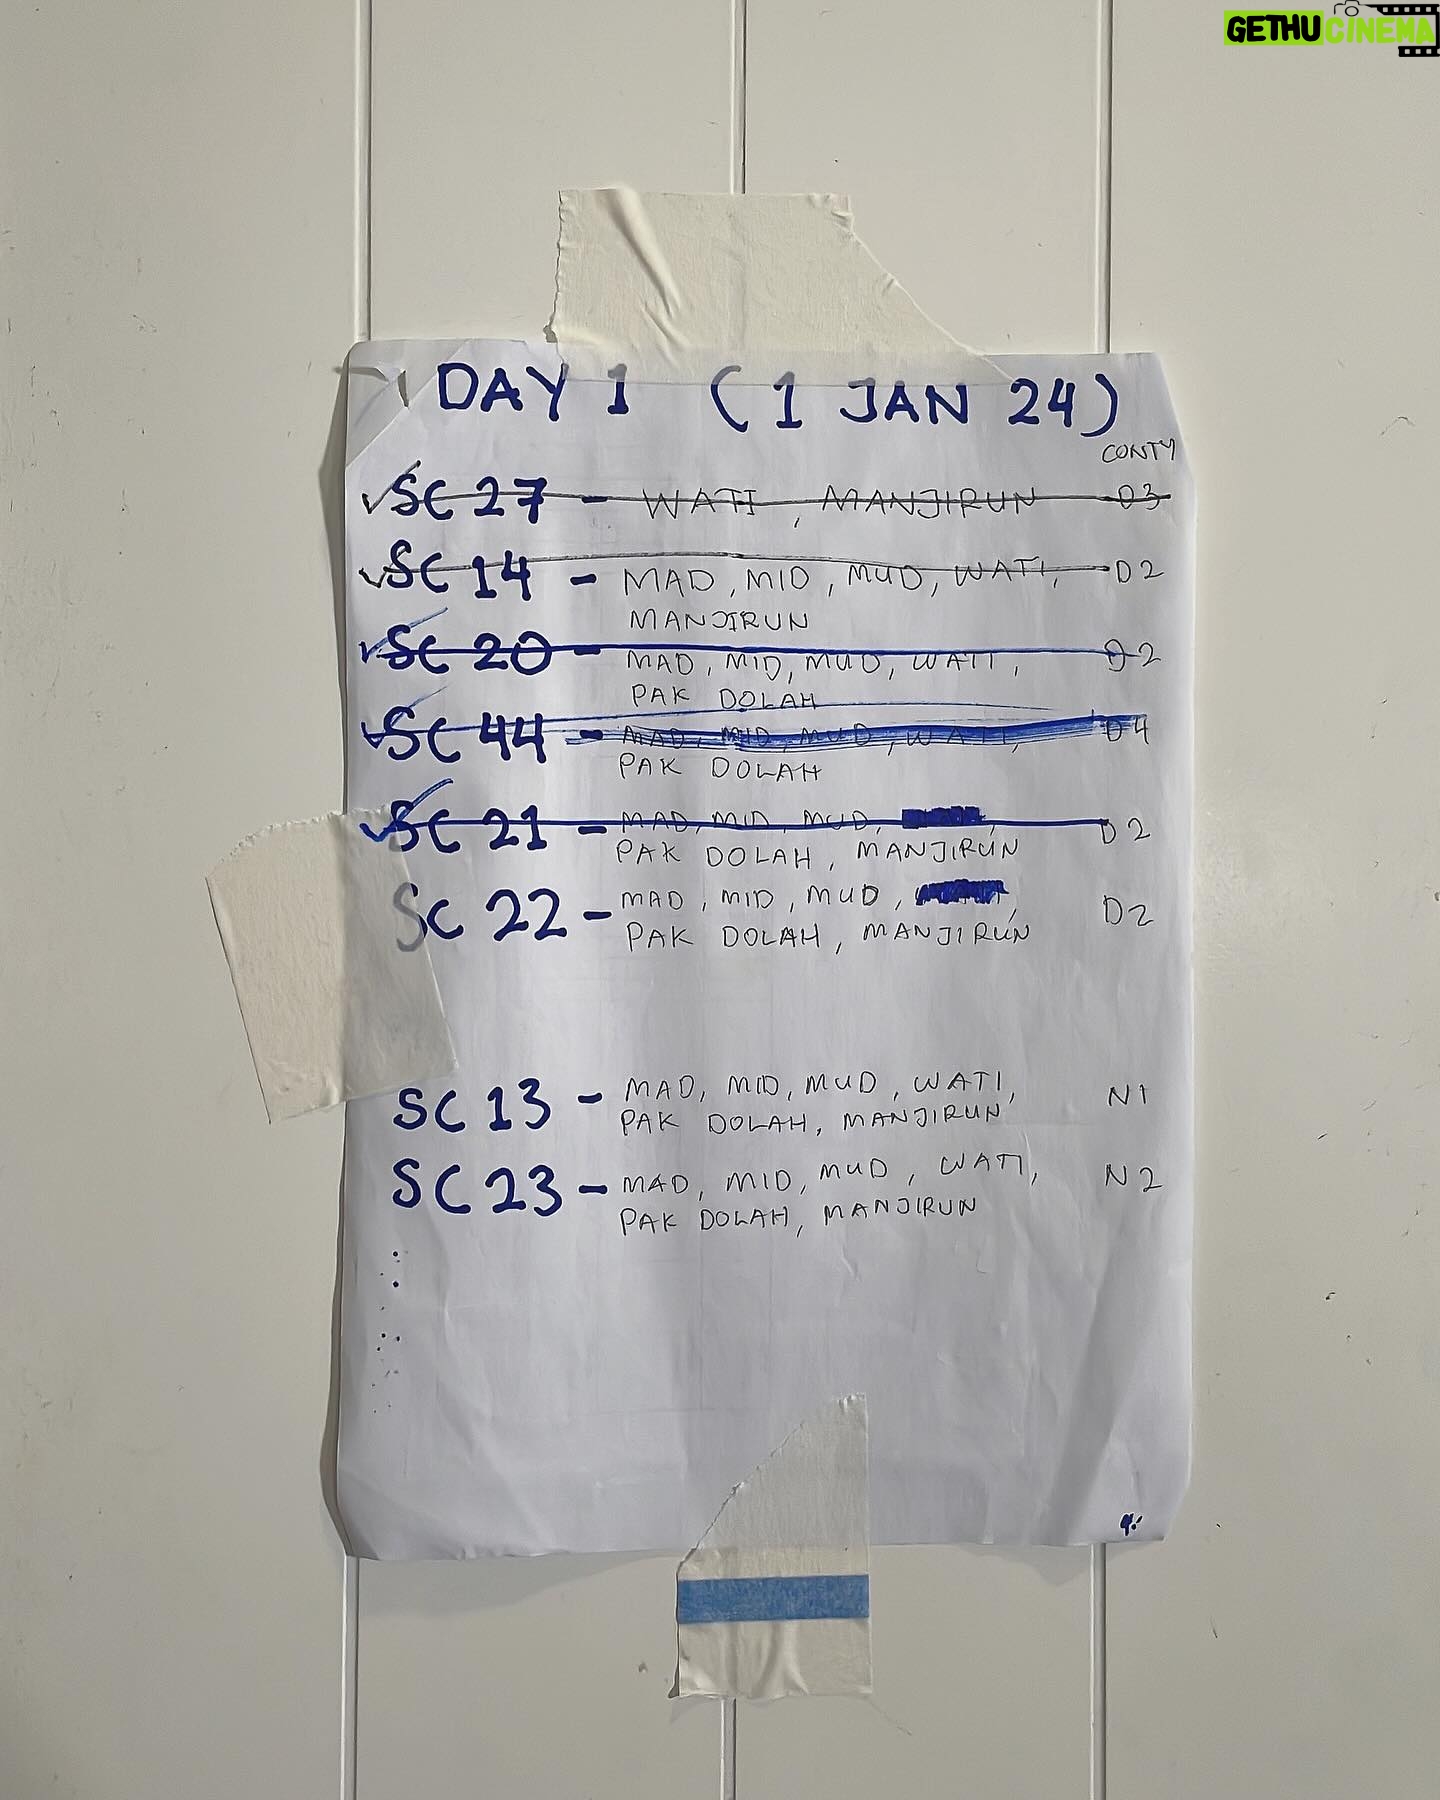 GETHUCINEMA
DAY 1 (1 JAN 24)
CONTY
SC 27 - WATI, MANJIRUN D3
SC 14 - MAD, MID, MUD, WATI, D2
MANJIRUN
SC 20 - MAD, MID, MUD, WATI, D2
PAK DOLAH
SC 44 - MAD, MID, MUD, WATI, D4
PAK DOLAH
SC 21 - MAD, MID, MUD, D2
PAK DOLAH, MANJIRUN
SC 22 - MAD, MID, MUD, D2
PAK DOLAH, MANJIRUN
SC 13 - MAD, MID, MUD, WATI, N1
PAK DOLAH, MANJIRUN
SC 23 - MAD, MID, MUD, WATI, N2
PAK DOLAH, MANJIRUN